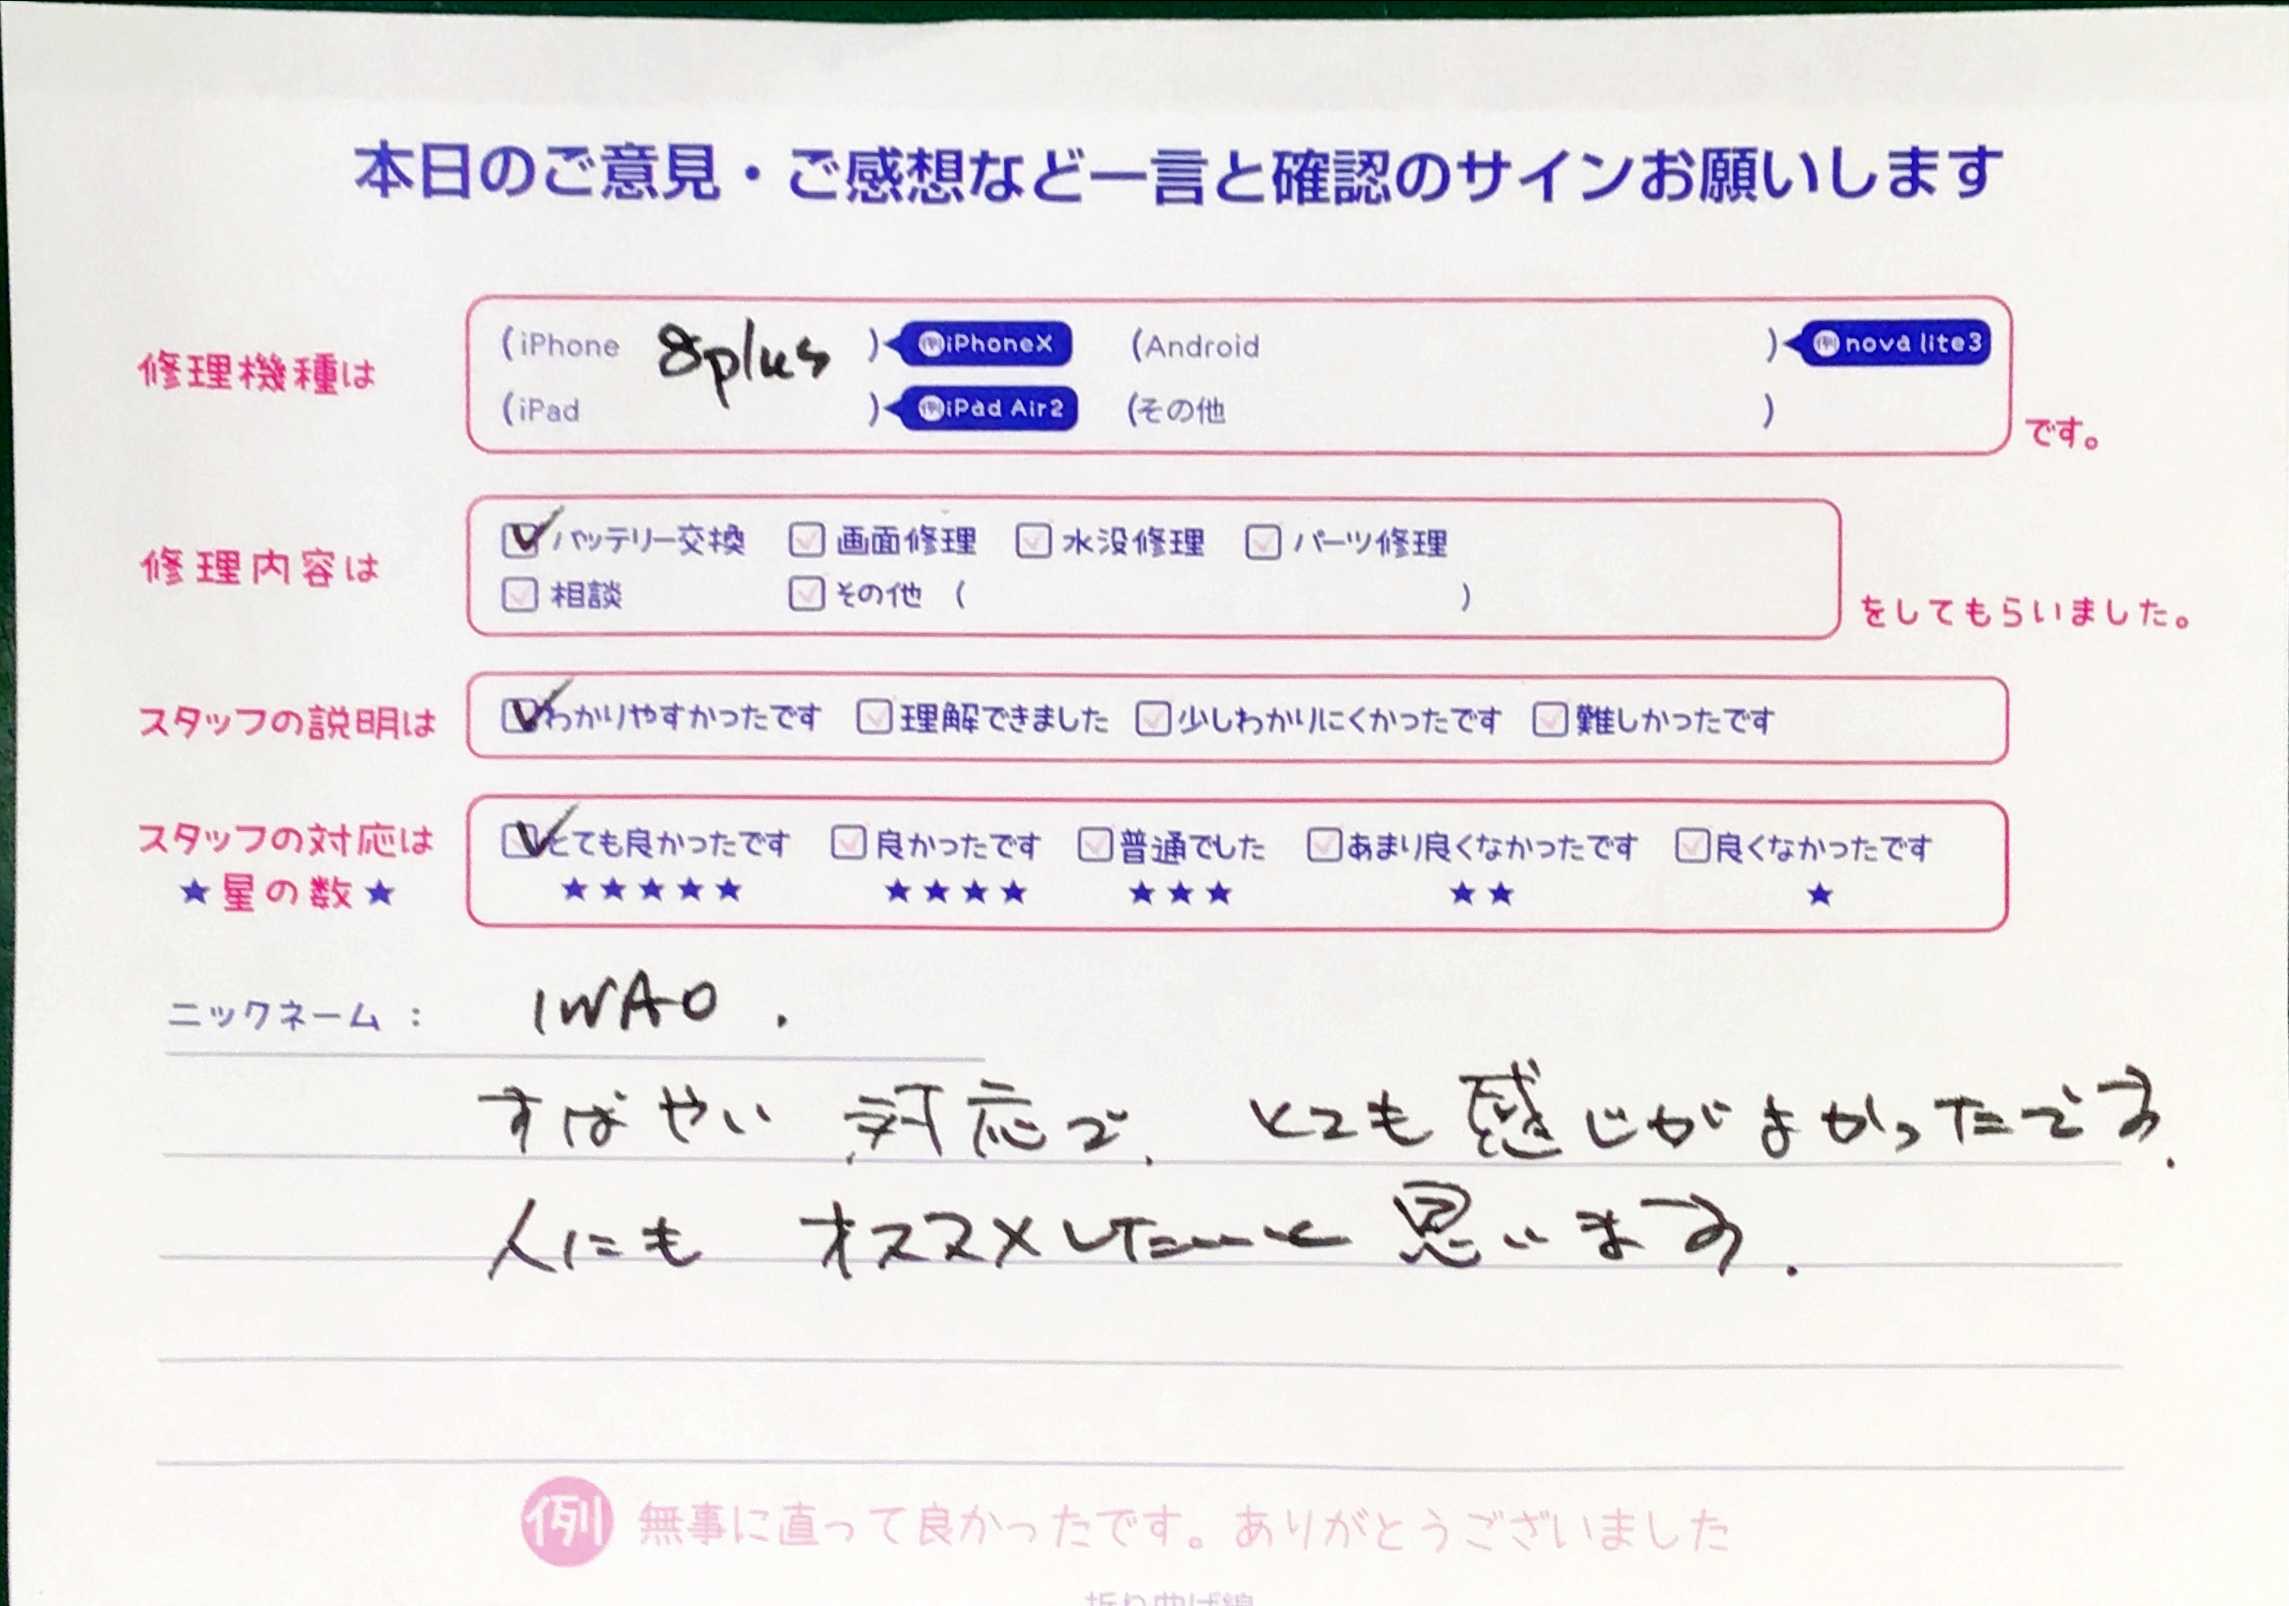 本日のご意見・ご感想など一言と確認のサインお願いします
修理機種は
(iPhone 8plus ) 例iPhoneX (Android ) 例nova lite3
(iPad ) 例iPad Air2 (その他 ) です。
修理内容は
バッテリー交換 画面修理 水没修理 パーツ修理
相談 その他 ( ) をしてもらいました。
スタッフの説明は わかりやすかったです 理解できました 少しわかりにくかったです 難しかったです
スタッフの対応は とても良かったです 良かったです 普通でした あまり良くなかったです 良くなかったです
★星の数★ ★★★★★ ★★★★ ★★★ ★★ ★
ニックネーム： IWAO.
すばやい対応で、とても感じがよかったです.
人にもオススメしたいと思います.
例 無事に直って良かったです。ありがとうございました
折り曲げ線